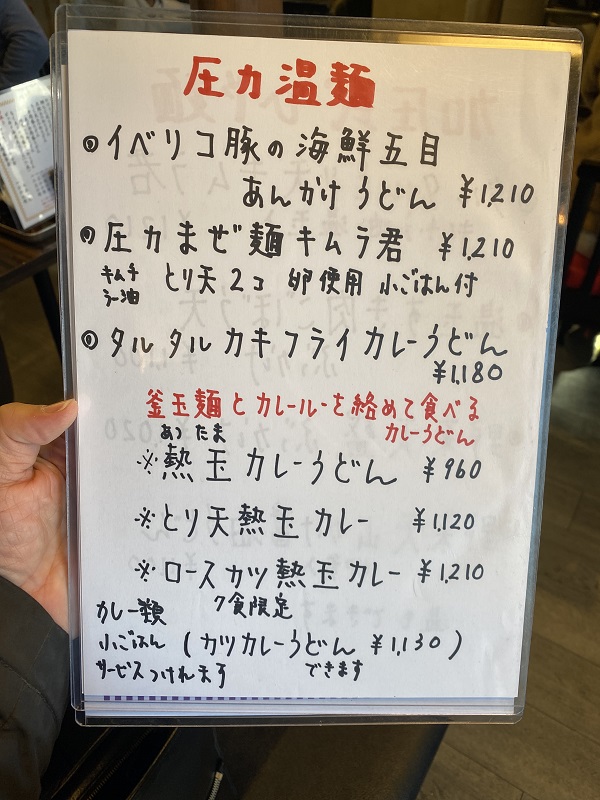 圧力温麺
◎イベリコ豚の海鮮五目
あんかけうどん ¥1,210
◎圧力まぜ麺キムラ君 ¥1,210
キムチ
ラー油 とり天2コ 卵使用 小ごはん付
◎タルタルカキフライカレーうどん
¥1,180
釜玉麺とカレールーを絡めて食べる
カレーうどん
あつたま
※熱玉カレーうどん ¥960
※とり天熱玉カレー ¥1,120
※ロースカツ熱玉カレー ¥1,210
7食限定
カレー類
小ごはん (カツカレーうどん ¥1,130)
サービスつけれます できます